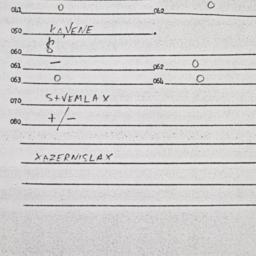 041 0 042 0
050 KAVENE .
060 8
061 – 062 0
063 0 064 0
070 S+VEMLAX
080 +/-
XAZERNISLAX